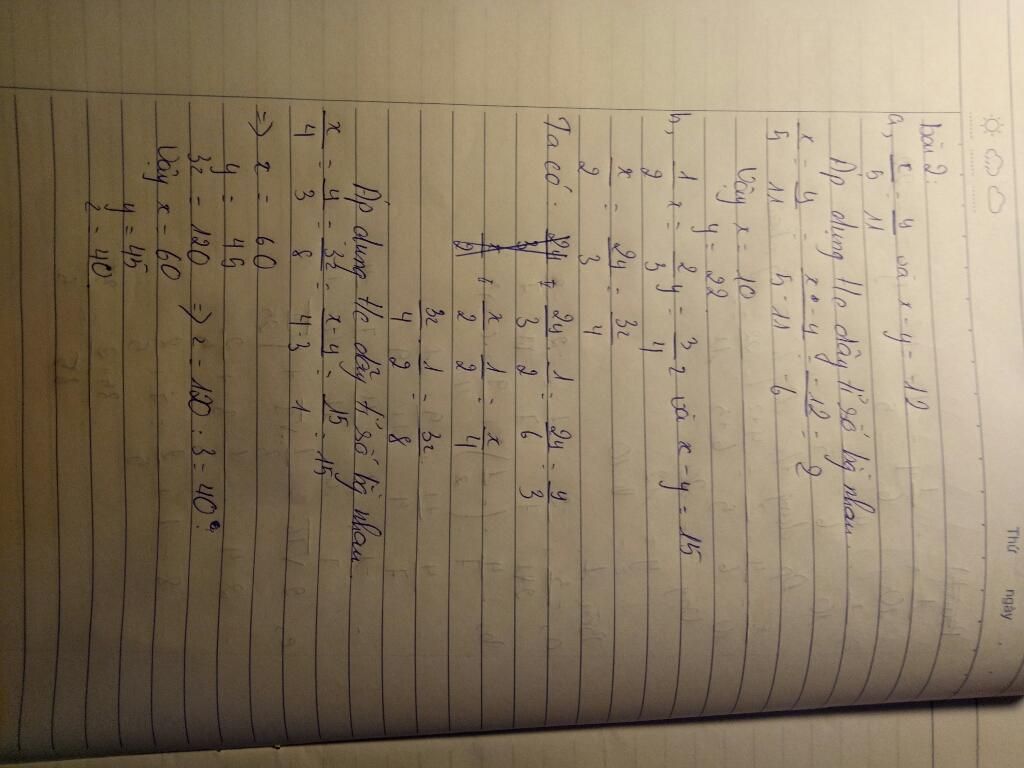 Thứ ngày
bài 2.
a, x/5 = y/11 và x - y = -12
Áp dụng t/c dãy tỉ số bg nhau
x/5 = y/11 = x - y/5 - 11 = -12/-6 = 2
Vậy x = 10
y = 22
b, 1/2 x = 2/3 y = 3/4 z và x - y = 15
x/2 = 2y/3 = 3z/4
Ta có: 2y/3 . 1/2 = 2y/6 = y/3
x/2 . 1/2 = x/4
3z/4 . 1/2 = 3z/8
Áp dụng t/c dãy tỉ số bg nhau
x/4 = y/3 = 3z/8 = x - y/4 - 3 = 15/1 = 15
=> x = 60
y = 45
3z = 120 => z = 120 : 3 = 40
Vậy x = 60
y = 45
z = 40